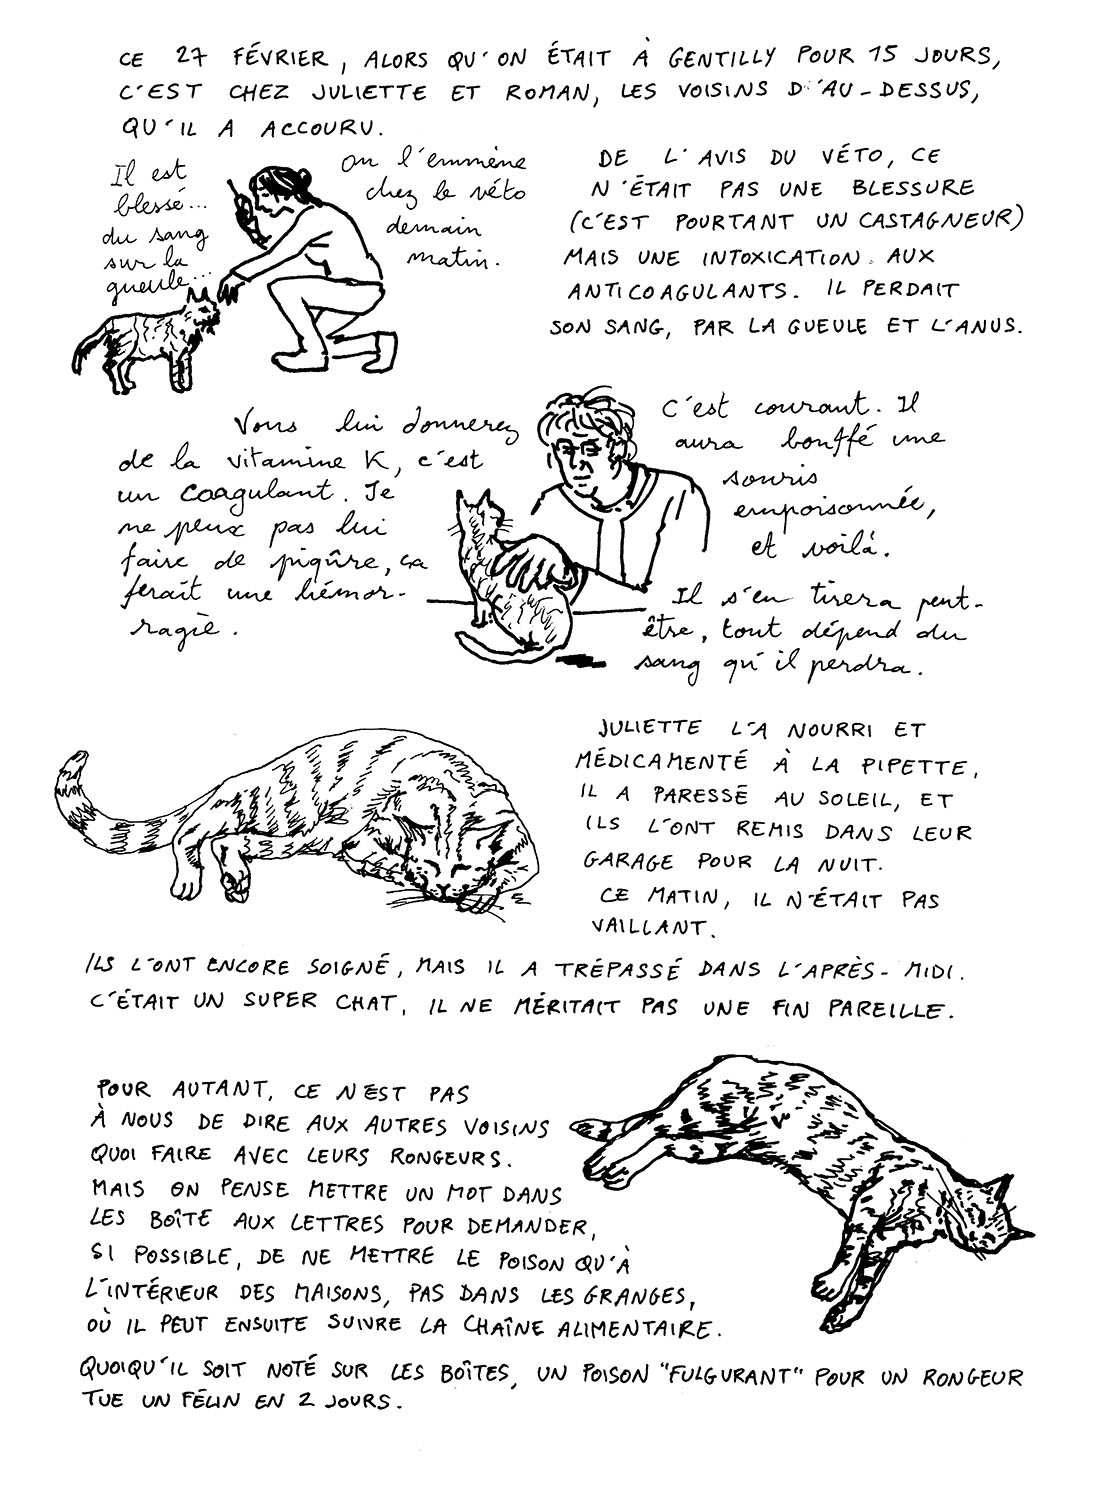 CE 27 FÉVRIER, ALORS QU'ON ÉTAIT À GENTILLY POUR 15 JOURS,
C'EST CHEZ JULIETTE ET ROMAN, LES VOISINS D'AU-DESSUS,
QU'IL A ACCOURU.
Il est
blessé...
du sang
sur la
gueule...
on l'emmène
chez le véto
demain
matin.
DE L'AVIS DU VÉTO, CE
N'ÉTAIT PAS UNE BLESSURE
(C'EST POURTANT UN CASTAGNEUR)
MAIS UNE INTOXICATION AUX
ANTICOAGULANTS. IL PERDAIT
SON SANG, PAR LA GUEULE ET L'ANUS.
Vous lui donnerez
de la vitamine K, c'est
un coagulant. Je
ne peux pas lui
faire de piqûre, ça
ferait une hémor-
ragie.
C'est courant. Il
aura bouffé une
souris
empoisonnée,
et voilà.
Il s'en tirera peut-
être, tout dépend du
sang qu'il perdra.
JULIETTE L'A NOURRI ET
MÉDICAMENTÉ À LA PIPETTE,
IL A PARESSÉ AU SOLEIL, ET
ILS L'ONT REMIS DANS LEUR
GARAGE POUR LA NUIT.
CE MATIN, IL N'ÉTAIT PAS
VAILLANT.
ILS L'ONT ENCORE SOIGNÉ, MAIS IL A TRÉPASSÉ DANS L'APRÈS-MIDI.
C'ÉTAIT UN SUPER CHAT, IL NE MÉRITAIT PAS UNE FIN PAREILLE.
POUR AUTANT, CE N'EST PAS
À NOUS DE DIRE AUX AUTRES VOISINS
QUOI FAIRE AVEC LEURS RONGEURS.
MAIS ON PENSE METTRE UN MOT DANS
LES BOÎTE AUX LETTRES POUR DEMANDER,
SI POSSIBLE, DE NE METTRE LE POISON QU'À
L'INTÉRIEUR DES MAISONS, PAS DANS LES GRANGES,
OÙ IL PEUT ENSUITE SUIVRE LA CHAÎNE ALIMENTAIRE.
QUOIQU'IL SOIT NOTÉ SUR LES BOÎTES, UN POISON "FULGURANT" POUR UN RONGEUR
TUE UN FÉLIN EN 2 JOURS.